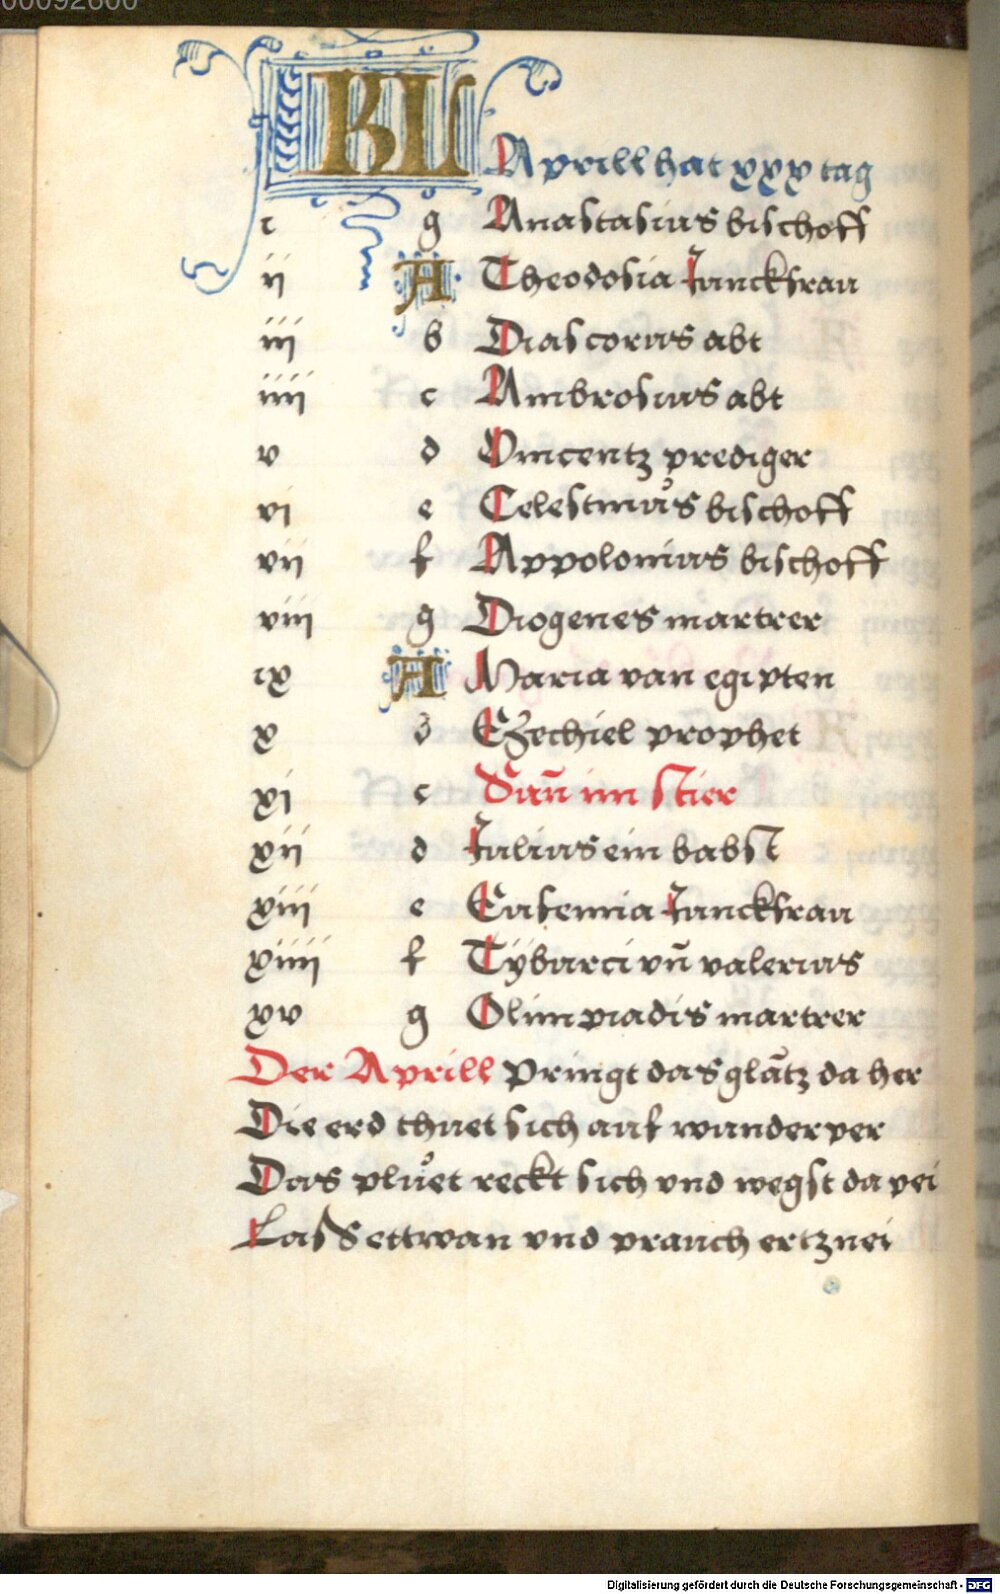 00092600
KL Aprill hat xxx tag
i g Anastasius bischoff
ii A Theodosia Junckfrau
iii b Diascorus abt
iiii c Ambrosius abt
v d Vincentz prediger
vi e Celestinus bischoff
vii f Appolonius bischoff
viii g Diogenes martrer
ix A Maria van egipten
x b Ezechiel prophet
xi c Sun̄ im Stier
xii d Julius ein babst
xiii e Eufemia Junckfrau
xiiii f Tÿburci vn̄ valerius
xv g Olimpiadis martrer
Der Aprill pringt das glātz da her
Die erd thuet sich auf wunderper
Das pluet reckt sich vnd wegst da pei
Lass ettwan vnd prauch ertznei
Digitalisierung gefördert durch die Deutsche Forschungsgemeinschaft - DFG